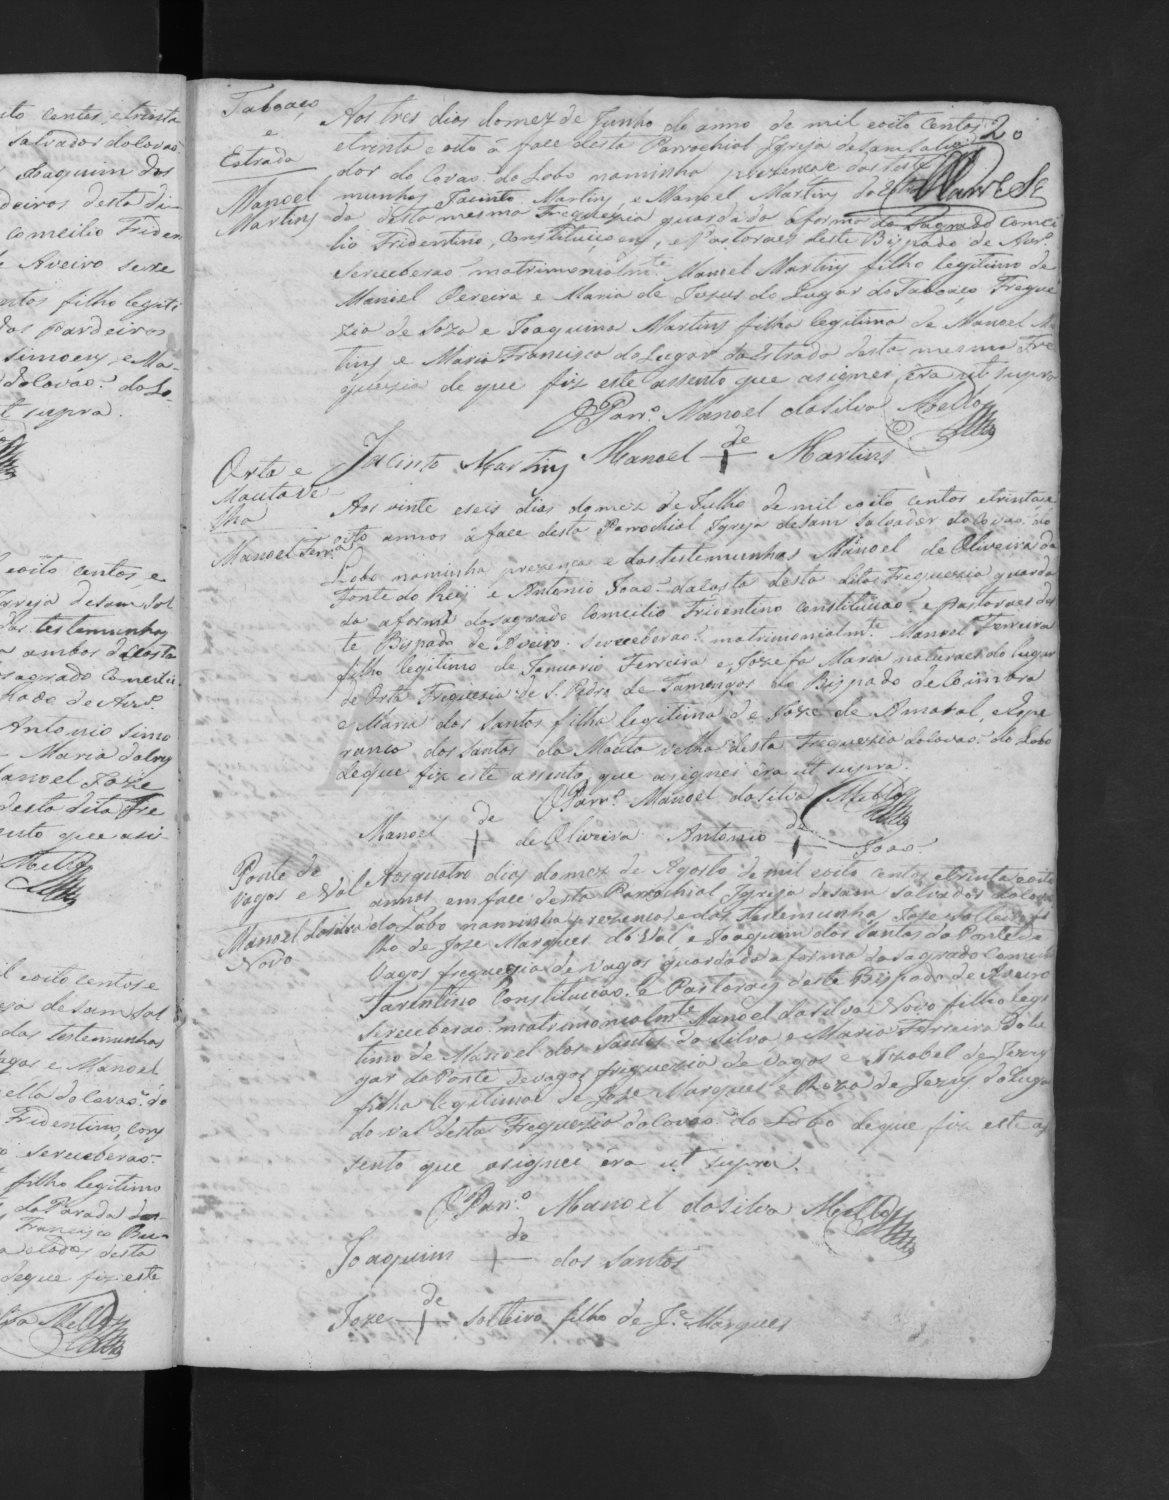 ito centos, e trinta
Salvador do Covaõ
Joaquim dos
deiros desta di-
Concilio Triden
Aveiro se re
filho legiti
dos Pardeiros
Simoens, e Ma-
do Covaõ do Lo-
t supra.
eoito centos, e
Igreja de Sam Sal
das testemunhas
ambos da Costa
sagrado Concilio
Antonio Simo
Maria
Manoel Joze
desta dita Fre
ento que asi
Mello
l eoito centos e
eja de Sam Sal
das testemunhas
agos e Manoel
ella do Covaõ do
Tridentino, Cons
se receberaõ
filho legitimo
da Parada
Francisco
desta
de que fiz este
Silva Mello
Taboaço
e
Estrada
Manoel
Martins
20
Aos tres dias do mez de Junho do anno de mil eoito centos
etrinta eoito á face desta Parrochial Igreja de Sam Salva
dor do Covaõ do Lobo na minha prezença e das teste
munhas Jacinto Martins, e Manoel Martins da Estra
da desta mesma Freguezia guardada a forma do Sagrado Conci
lio Tridentino, Constituiçoens, e Pastoraes deste Bispado de Avrº
se receberaõ matrimonialmte Manoel Martins filho legitimo de
Manoel Pereira e Maria de Jezus do Lugar do Taboaço Fregue
zia de Soza e Joaquina Martins filha legitima de Manoel Mar
tins e Maria Francisca do Lugar da Estrada desta mesma Fre
guezia de que fiz este assento que asignei, éra ut supra
O Parrº Manoel da Silva Mello
Jacinto Martins Manoel de + Martins
Orta e
Mouta Ve
lha
Manoel Ferrª
Aos vinte eseis dias do mez de Julho de mil eoito centos etrinta e
oito annos á face desta Parrochial Igreja de Sam Salvador do Covaõ do
Lobo na minha prezença e das testemunhas Manoel de Oliveira da
Fonte do Reis e Antonio Joaõ da Costa desta dita Freguezia guarda
da a forma do Sagrado Concilio Tridentino Constituicaõ e Pastoraes des
te Bispado de Aveiro. se receberaõ matrimonialmte Manoel Ferreira
filho legitimo de Januario Ferreira e Jozefa Maria naturaes do lugar
de Orta Friguezia de S. Pedro de Tamengos do Bispado de Coimbra
e Maria dos Santos filha legitima de Joze de Amaral, e Espe
ranca dos Santos da Mouta velha desta Freguezia do Covaõ do Lobo
de que fiz este assento, que asignei éra ut supra.
O Parrº Manoel da Silva Mello
Manoel de + de Oliveira Antonio de + Joaõ
Ponte de
Vagos e Val
Manoel da Silva
Novo
Aos quatro dias do mez de Agosto de mil eoito centos etrinta eoito
annos em face desta Parrochial Igreja de Sam Salvador do Covaõ
do Lobo na minha prezença e das testemunhas Joze solteiro fi
lho de Joze Marques do Val e Joaquim dos Santos da Ponte de
Vagos freguezia de Vagos guardada a forma do Sagrado Concilio
Tarentino Constituicaõ e Pastoraes deste Bispado de Aveiro
se receberaõ matrimonialmte Manoel da Silva Novo filho legi
timo de Manoel dos Santos da Silva e Maria Ferreira do lu
gar da Ponte de Vagos friguezia de Vagos e Izabel de Jezus
filha legitima de Joze Marques e Roza de Jezus do Lugar
do Val desta Freguezia do Covaõ do Lobo de que fiz este as
sento que asignei éra ut supra.
O Parrº Manoel da Silva Mello
Joaquim de + dos Santos
Joze de + solteiro filho de Je Marques